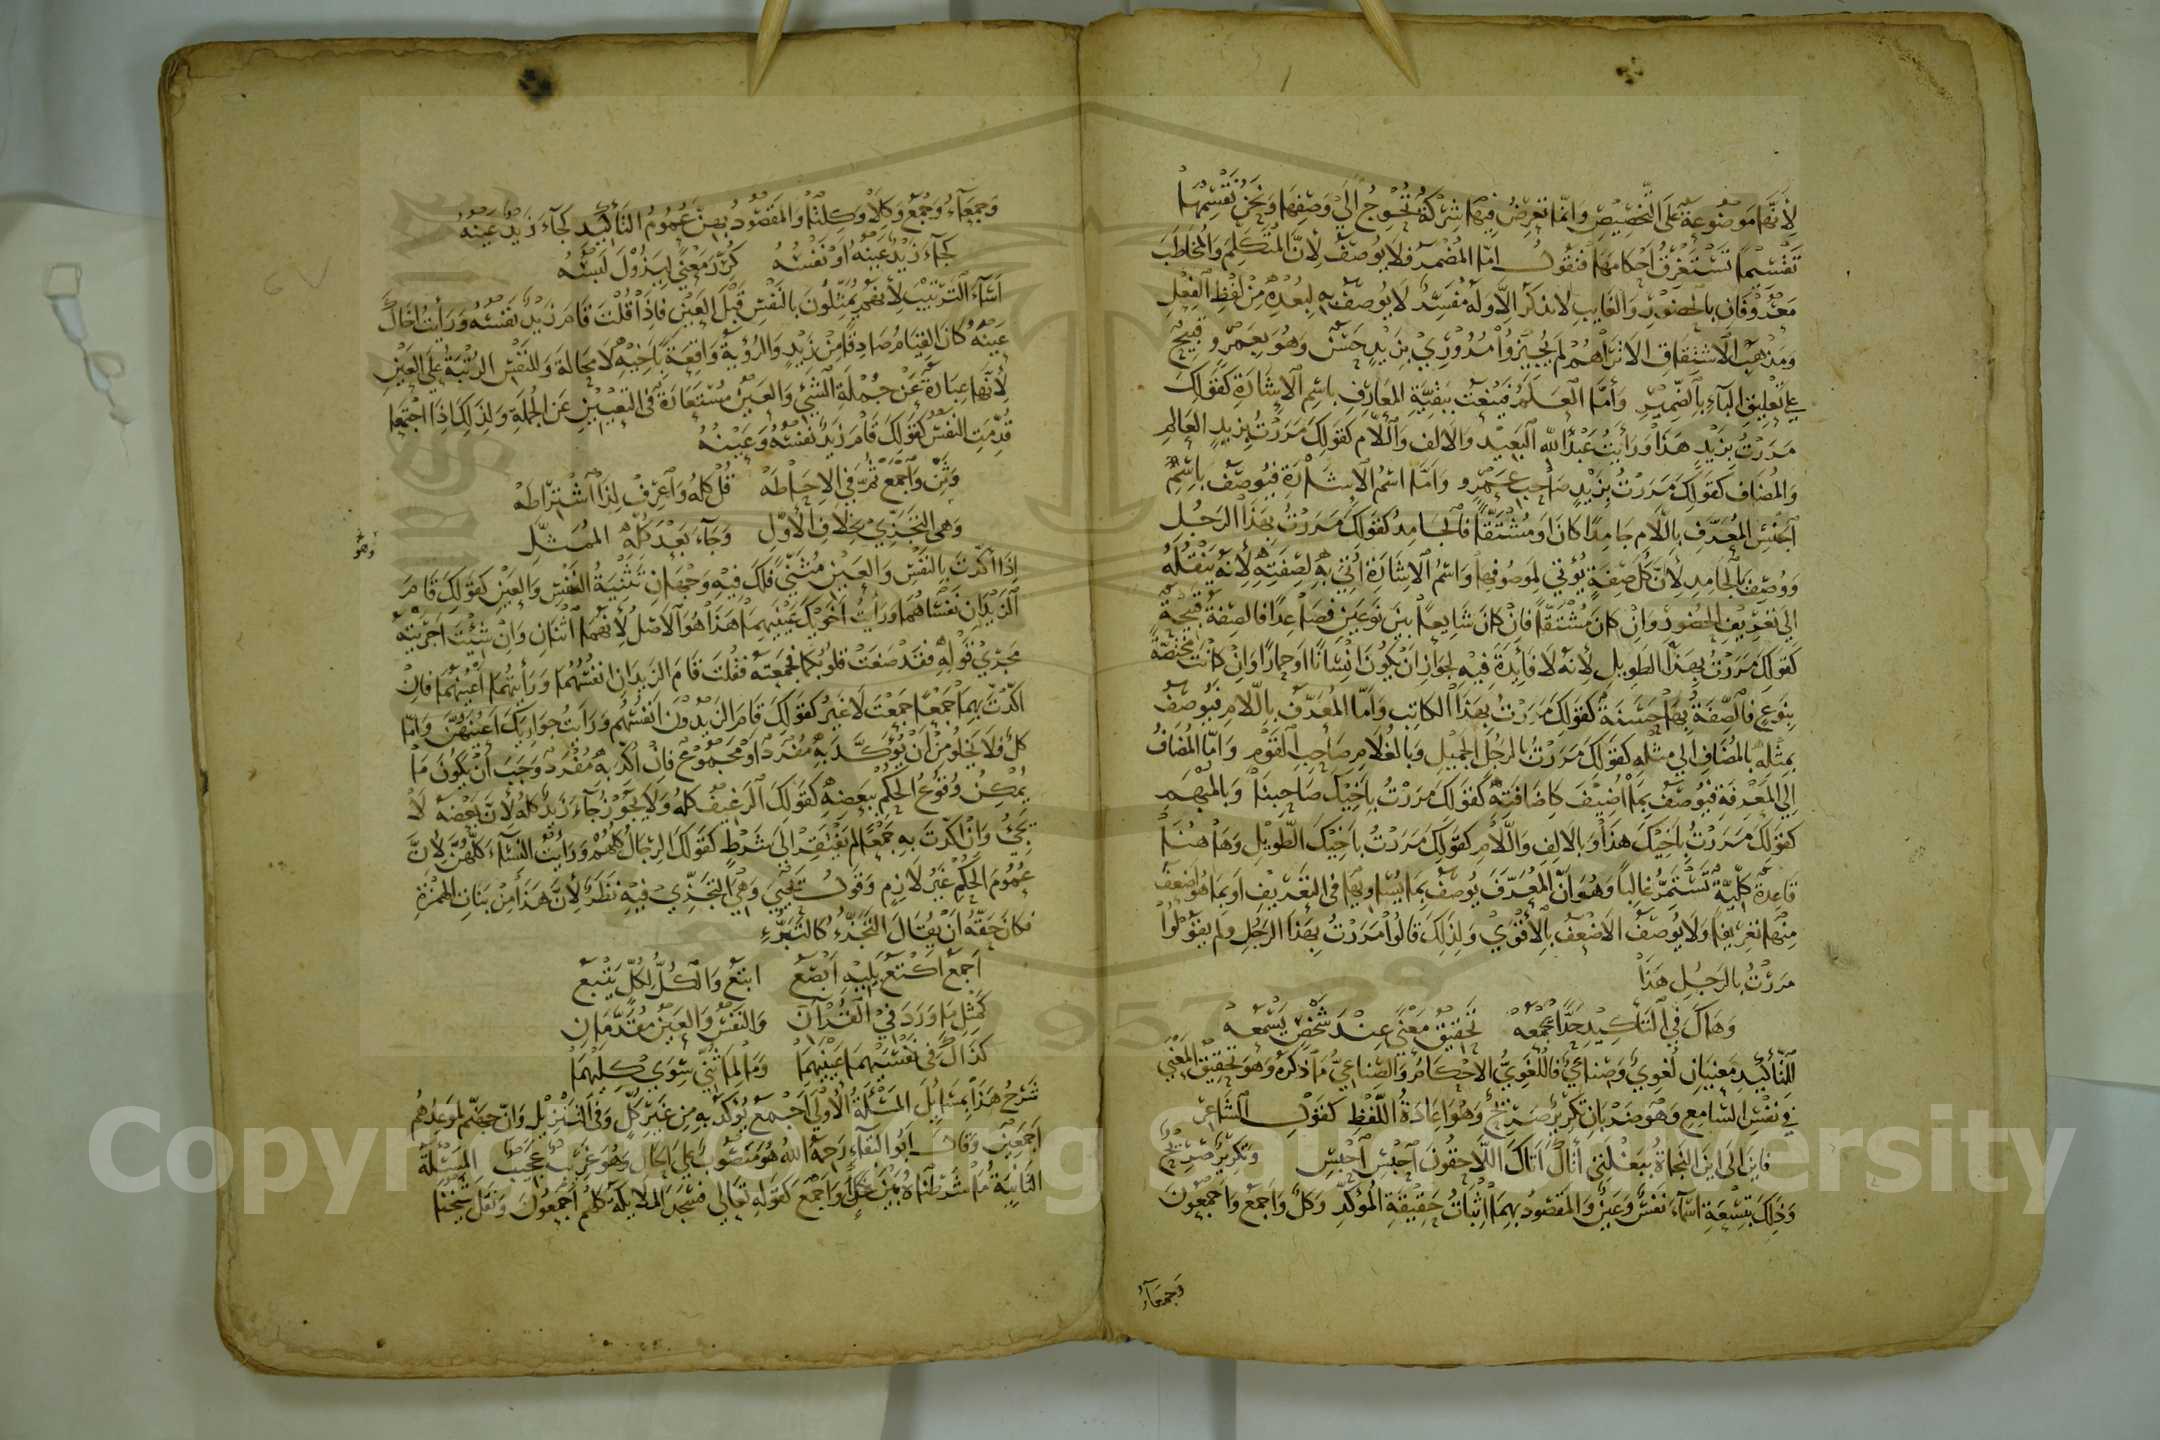 لِأَنَّهَا مَوْضُوعَةٌ عَلَى التَّخْصِيصِ وَإِنَّمَا تَعْرِضُ فِيهَا شِرْكَةٌ تُحْوِجُ إِلَى وَصْفِهَا وَنَحْنُ نُقَسِّمُهَا
تَقْسِيمًا تَسْتَغْرِقُ أَحْكَامَهَا فَنَقُولُ أَمَّا الْمُضْمَرُ فَلَا يُوصَفُ لِأَنَّ الْمُتَكَلِّمَ وَالْمُخَاطَبَ
مَعْرُوفَانِ بِالْحُضُورِ وَالْغَايِبِ لَا يُذْكَرُ إِلَّا وَلَهُ مُفَسِّرٌ لَا يُوصَفُ بِهِ لِبُعْدِهِ مِنْ لَفْظِ الْفِعْلِ
وَمَذْهَبِ الِاشْتِقَاقِ أَلَا تَرَاهُمْ لَمْ يُجِيزُوا مُرُورِي بِزَيْدٍ حَسَنٌ وَهُوَ بِعَمْرٍو قَبِيحٌ
عَلَى تَعْلِيقِ الْبَاءِ بِالضَّمِيرِ وَأَمَّا الْعَلَمُ فَيُنْعَتُ بِبَقِيَّةِ الْمَعَارِفِ بِاسْمِ الْإِشَارَةِ كَقَوْلِكَ
مَرَرْتُ بِزَيْدٍ هَذَا وَرَأَيْتُ عَبْدَ اللهِ الْبَعِيدِ وَالْأَلِفِ وَاللَّامِ كَقَوْلِكَ مَرَرْتُ بِزَيْدٍ الْعَالِمِ
وَالْمُضَافِ كَقَوْلِكَ مَرَرْتُ بِزَيْدٍ صَاحِبِ عَمْرٍو وَأَمَّا اسْمُ الْإِشَارَةِ فَيُوصَفُ بِاسْمِ
الْجِنْسِ الْمُعَرَّفِ بِاللَّامِ جَامِدًا كَانَ أَوْ مُشْتَقًّا فَالْجَامِدُ كَقَوْلِكَ مَرَرْتُ بِهَذَا الرَّجُلِ
وَوُصِفَ بِالْجَامِدِ لِأَنَّ كُلَّ صِفَةٍ يُؤْتَى لِمَوْصُوفِهَا وَاسْمُ الْإِشَارَةِ أُتِيَ بِهِ لِصِفَتِهِ لِأَنَّهُ يَنْقُلُهُ
إِلَى تَعْرِيفِ الْحُضُورِ وَإِنْ كَانَ مُشْتَقًّا فَإِنْ كَانَ شَايِعًا بَيْنَ نَوْعَيْنِ فَصَاعِدًا فَالصِّفَةُ قَبِيحَةٌ
كَقَوْلِكَ مَرَرْتُ بِهَذَا الطَّوِيلِ لِأَنَّهُ لَا فَايِدَةَ فِيهِ لِجَوَازِ أَنْ يَكُونَ إِنْسَانًا أَوْ حِمَارًا وَإِنْ كَانَتْ مُخْتَصَّةً
بِنَوْعٍ فَالصِّفَةُ بِهَا حَسَنَةٌ كَقَوْلِكَ مَرَرْتُ بِهَذَا الْكَاتِبِ وَأَمَّا الْمُعَرَّفُ بِاللَّامِ فَيُوصَفُ
بِمِثْلِهِ بِالْمُضَافِ إِلَى مِثْلِهِ كَقَوْلِكَ مَرَرْتُ بِالرَّجُلِ الْجَمِيلِ وَبِالْغُلَامِ صَاحِبِ الْقَوْمِ وَأَمَّا الْمُضَافُ
إِلَى الْمَعْرِفَةِ فَيُوصَفُ بِمَا أُضِيفَ كَإِضَافَتِهِ كَقَوْلِكَ مَرَرْتُ بِأَخِيكَ صَاحِبِنَا وَبِالْمُبْهَمِ
كَقَوْلِكَ مَرَرْتُ بِأَخِيكَ هَذَا وَبِالْأَلِفِ وَاللَّامِ كَقَوْلِكَ مَرَرْتُ بِأَخِيكَ الطَّوِيلِ وَهَاهُنَا
قَاعِدَةٌ كُلِّيَّةٌ تَسْتَمِرُّ غَالِبًا وَهُوَ أَنَّ الْمُعَرَّفَ يُوصَفُ بِمَا يُسَاوِيهَا فِي التَّعْرِيفِ أَوْ بِمَا هُوَ أَضْعَفُ
مِنْهَا تَعْرِيفًا وَلَا يُوصَفُ الْأَضْعَفُ بِالْأَقْوَى وَلِذَلِكَ قَالُوا مَرَرْتُ بِهَذَا الرَّجُلِ وَلَمْ يَقُولُوا
مَرَرْتُ بِالرَّجُلِ هَذَا
وَهَاكَ فِي التَّأْكِيدِ حَدًّا أَجْمَعُهُ تَحْقِيقُ مَعْنًى عِنْدَ شَخْصٍ يَسْمَعُهُ
لِلتَّأْكِيدِ مَعْنِيَانِ لُغَوِيٌّ وَصِنَاعِيٌّ فَاللُّغَوِيُّ الْإِحْكَامُ وَالصِّنَاعِيُّ مَا ذَكَرَهُ وَهُوَ تَحْقِيقُ الْمَعْنَى
فِي نَفْسِ السَّامِعِ وَهُوَ ضَرْبَانِ تَكْرِيرٌ صَرِيحٌ وَهُوَ إِعَادَةُ اللَّفْظِ كَقَوْلِ الشَّاعِرِ
فَأَيْنَ إِلَى أَيْنَ النَّجَاةُ بِبَغْلَتِي أَتَاكَ أَتَاكَ اللَّاحِقُونَ احْبِسِ احْبِسِ وَتَكْرِيرٌ صَرِيحٌ
وَذَلِكَ بِتِسْعَةِ أَسْمَاءَ نَفْسٌ وَعَيْنٌ وَالْمَقْصُودُ بِهِمَا إِثْبَاتُ حَقِيقَةِ الْمُؤَكَّدِ وَكُلٌّ وَأَجْمَعُ وَأَجْمَعُونَ
وَجَمْعَاءُ
وَجَمْعَاءُ وَجُمَعُ وَكِلَا وَكِلْتَا وَالْمَقْصُودُ بِهِنَّ عُمُومُ التَّأْكِيدِ كَجَاءَ زَيْدٌ عَيْنُهُ
كَجَاءَ زَيْدٌ عَيْنُهُ أَوْ نَفْسُهُ كُرِّرَ مَعْنًى لِيَزُولَ لَبْسُهُ
أَسَاءَ التَّرْتِيبَ لِأَنَّهُمْ يُمَثِّلُونَ بِالنَّفْسِ قَبْلَ الْعَيْنِ فَإِذَا قُلْتَ قَامَ زَيْدٌ نَفْسُهُ وَرَأَيْتُ أَخَاكَ
عَيْنَهُ كَانَ الْقِيَامُ صَادِقًا مِنْ زَيْدٍ وَالرُّؤْيَةُ وَاقِعَةً بِأَخِيهِ لَا مَحَالَةَ وَلِلنَّفْسِ الرُّتْبَةُ عَلَى الْعَيْنِ
لِأَنَّهَا عِبَارَةٌ عَنْ جُمْلَةِ الشَّيْءِ وَالْعَيْنُ مُسْتَعَارَةٌ فِي التَّعْبِيرِ عَنِ الْجُمْلَةِ وَلِذَلِكَ إِذَا اجْتَمَعَا
قُدِّمَتِ النَّفْسُ كَقَوْلِكَ قَامَ زَيْدٌ نَفْسُهُ وَعَيْنُهُ
وَثَنِّ وَاجْمَعْ ثُمَّ فِي الْإِحَاطَهْ قُلْ كُلُّهُ وَاعْرِفْ لِذَا اشْتِرَاطَهْ
وَهِيَ التَّجَزِّي بِخِلَافِ الْأَوَّلِ وَجَاءَ بَعْدَ كُلِّهِ الْمُمَثَّلِ
وَهُوَ
إِذَا أَكَّدْتَ بِالنَّفْسِ وَالْعَيْنِ مُثَنًّى فَلَكَ فِيهِ وَجْهَانِ تَثْنِيَةُ النَّفْسِ وَالْعَيْنِ كَقَوْلِكَ قَامَ
الزَّيْدَانِ نَفْسَاهُمَا وَرَأَيْتُ أَخَوَيْكَ عَيْنَيْهِمَا هَذَا هُوَ الْأَصْلُ لِأَنَّهُمَا اثْنَانِ وَإِنْ شِئْتَ أَجْرَيْتَهُ
مَجْرَى قَوْلِهِ فَقَدْ صَغَتْ قُلُوبُكُمَا فَجَمَعْتَهُ فَقُلْتَ قَامَ الزَّيْدَانِ أَنْفُسُهُمَا وَرَأَيْتُهُمَا أَعْيُنَهُمَا فَإِنْ
أَكَّدْتَ بِهِمَا جَمْعًا جَمَعْتَ لَا غَيْرُ كَقَوْلِكَ قَامَ الزَّيْدُونَ أَنْفُسُهُمْ وَرَأَيْتُ جَوَارِيَكَ أَعْيُنَهُنَّ وَأَمَّا
كُلٌّ فَلَا يَخْلُو مِنْ أَنْ يُؤَكَّدَ بِهِ مُفْرَدٌ أَوْ مَجْمُوعٌ فَإِنْ أُكِّدَ بِهِ مُفْرَدٌ وَجَبَ أَنْ يَكُونَ مَا
يُمْكِنُ وُقُوعُ الْحُكْمِ بِبَعْضِهِ كَقَوْلِكَ الرَّغِيفُ كُلُّهُ وَلَا يَجُوزُ جَاءَ زَيْدٌ كُلُّهُ لِأَنَّ بَعْضَهُ لَا
يَجِيءُ وَإِنْ أَكَّدْتَ بِهِ جَمْعًا لَمْ يَفْتَقِرْ إِلَى شَرْطٍ كَقَوْلِكَ الرِّجَالُ كُلُّهُمْ وَرَأَيْتُ النِّسَاءَ كُلَّهُنَّ لِأَنَّ
عُمُومَ الْحُكْمِ غَيْرُ لَازِمٍ وَقَوْلُ يَحْيَى وَهِيَ التَّجَزِّي فِيهِ نَظَرٌ لِأَنَّ هَذَا مِنْ بَنَاتِ الْهَمْزَةِ
فَكَانَ حَقُّهُ أَنْ يُقَالَ التَّجَزُّءُ كَالتَّبَرُّءِ
أَجْمَعُ أَكْتَعُ يَلِيهِ أَبْصَعُ أَبْتَعُ وَالْكُلُّ لِكُلٍّ يَتْبَعُ
كَمِثْلِ مَا وَرَدَ فِي الْقُرْآنِ وَالنَّفْسُ وَالْعَيْنُ مُقَدَّمَانِ
كَذَاكَ فِي نَفْسَيْهِمَا عَيْنَيْهِمَا وَمَا لِمَا ثُنِّيَ سِوَى كِلَيْهِمَا
شَرْحُ هَذَا بِمَسَايِلَ الْمَسْئَلَةُ الْأُولَى أَجْمَعُ يُؤَكَّدُ بِهِ مِنْ غَيْرِ كُلٍّ وَفِي التَّنْزِيلِ وَإِنَّ جَهَنَّمَ لَمَوْعِدُهُمْ
أَجْمَعِينَ وَقَالَ أَبُو الْبَقَاءِ رَحِمَهُ اللهُ هُوَ مَنْصُوبٌ عَلَى الْحَالِ وَهُوَ غَرِيبٌ عَجِيبٌ الْمَسْئَلَةُ
الثَّانِيَةُ مَا شَرَطْنَاهُ بَيْنَ كُلٍّ وَأَجْمَعَ كَقَوْلِهِ تَعَالَى فَسَجَدَ الْمَلَايِكَةُ كُلُّهُمْ أَجْمَعُونَ وَنَقَلَ شَيْخُنَا
Copyright © King Saud University